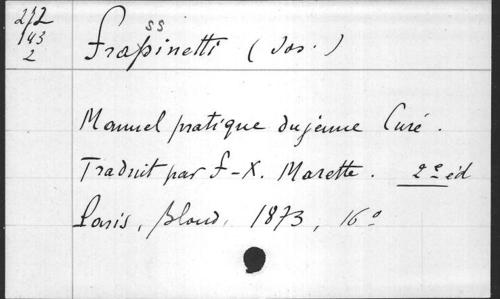 212
143
2
Frassinetti (Jos.)
Manuel pratique du jeune Curé.
Traduit par F-X. Marette. 2e éd
Paris, Bloud, 1873, 16°